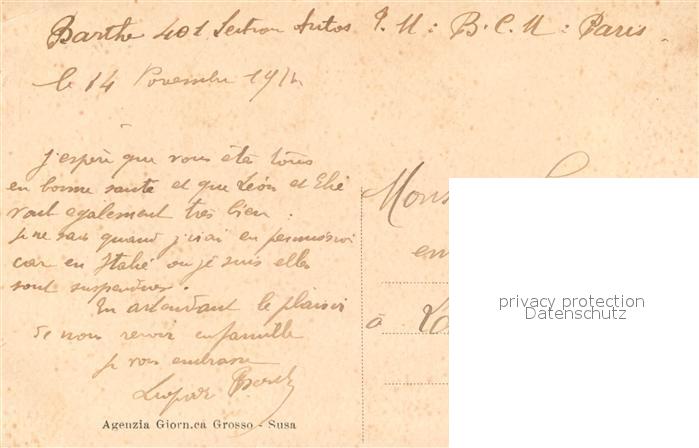 Barthe 401 Section Autos T. M : B. C. M : Paris
le 14 Novembre 191
j'espère que vous êtes tous
en bonne santé et que Léon et Elie
vont également très bien.
je ne sais quand j'irai en permission
car en Italie ou je suis elles
sont suspendues.
En attendant le plaisir
de nous revoir en famille
je vous embrasse
Barthe
Mons
en
à
privacy protection
Datenschutz
Agenzia Giorn.ca Grosso - Susa